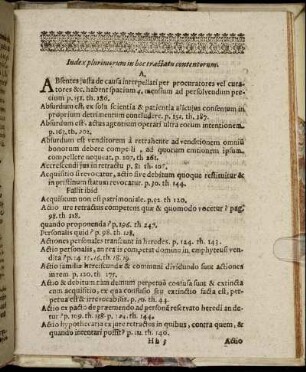 Index plurimorum in hoc tractatu contentorum.
A.
ABsentes justa de causa interpellati per procuratores vel cura-
tores &c. habent spacium 4. mensium ad persolvendum pre-
cium p. 151. th. 186.
Absurdum est ex sola scientia & patientia alicujus consensum in
proprium detrimentum concludere. p. 152. th. 187.
Absurdum est, actus agentium operari ultra eorum intentionem.
p. 163. th. 202.
Absurdum est venditorem à retrahente ad venditionem omniū
bonorum debere compelli, ad quorum emtionem ipsum
compellere nequeat. p. 107. th. 182.
Accrescendi jus in retractu p. 81. th. 102.
Acquisitio si revocatur, actio sive debitum quoque restituitur &
in pristinum statum revocatur. p. 120. th. 144.
Fallit ibid.
Acquisitum non est patrimoniale. p. 52. th. 120.
Actio jure retractus competens quæ & quomodo vocetur? pag.
98. th. 118.
quando proponenda? p. 196. th. 247.
Personalis quid? p. 98. th. 118.
Actiones personales transeunt in heredes. p. 124. th. 143.
Actio personalis, an vera in competat domino in emphyteusi ven-
dita? p. 14. 15. 16. th. 18. 19.
Actio familiæ herciscundæ & communi dividundo sunt actiones
in rem p. 120. th. 171.
Actio & debitum tam dummum perpetuò confusa sunt & extincta
cum acquisitio, ex qua confusio seu extinctio facta est, per-
petua est & irrevocabilis. p. 119. th. 44.
Actio ex pacto de præemendo ad personā reservato heredi an de-
tur? p. 109. th. 118. p. 124. th. 144.
Actio hypothecaria ex jure retractus in quibus, contra quem, &
quando intentari possit? p. 112. th. 140.
Hh 3 Actio